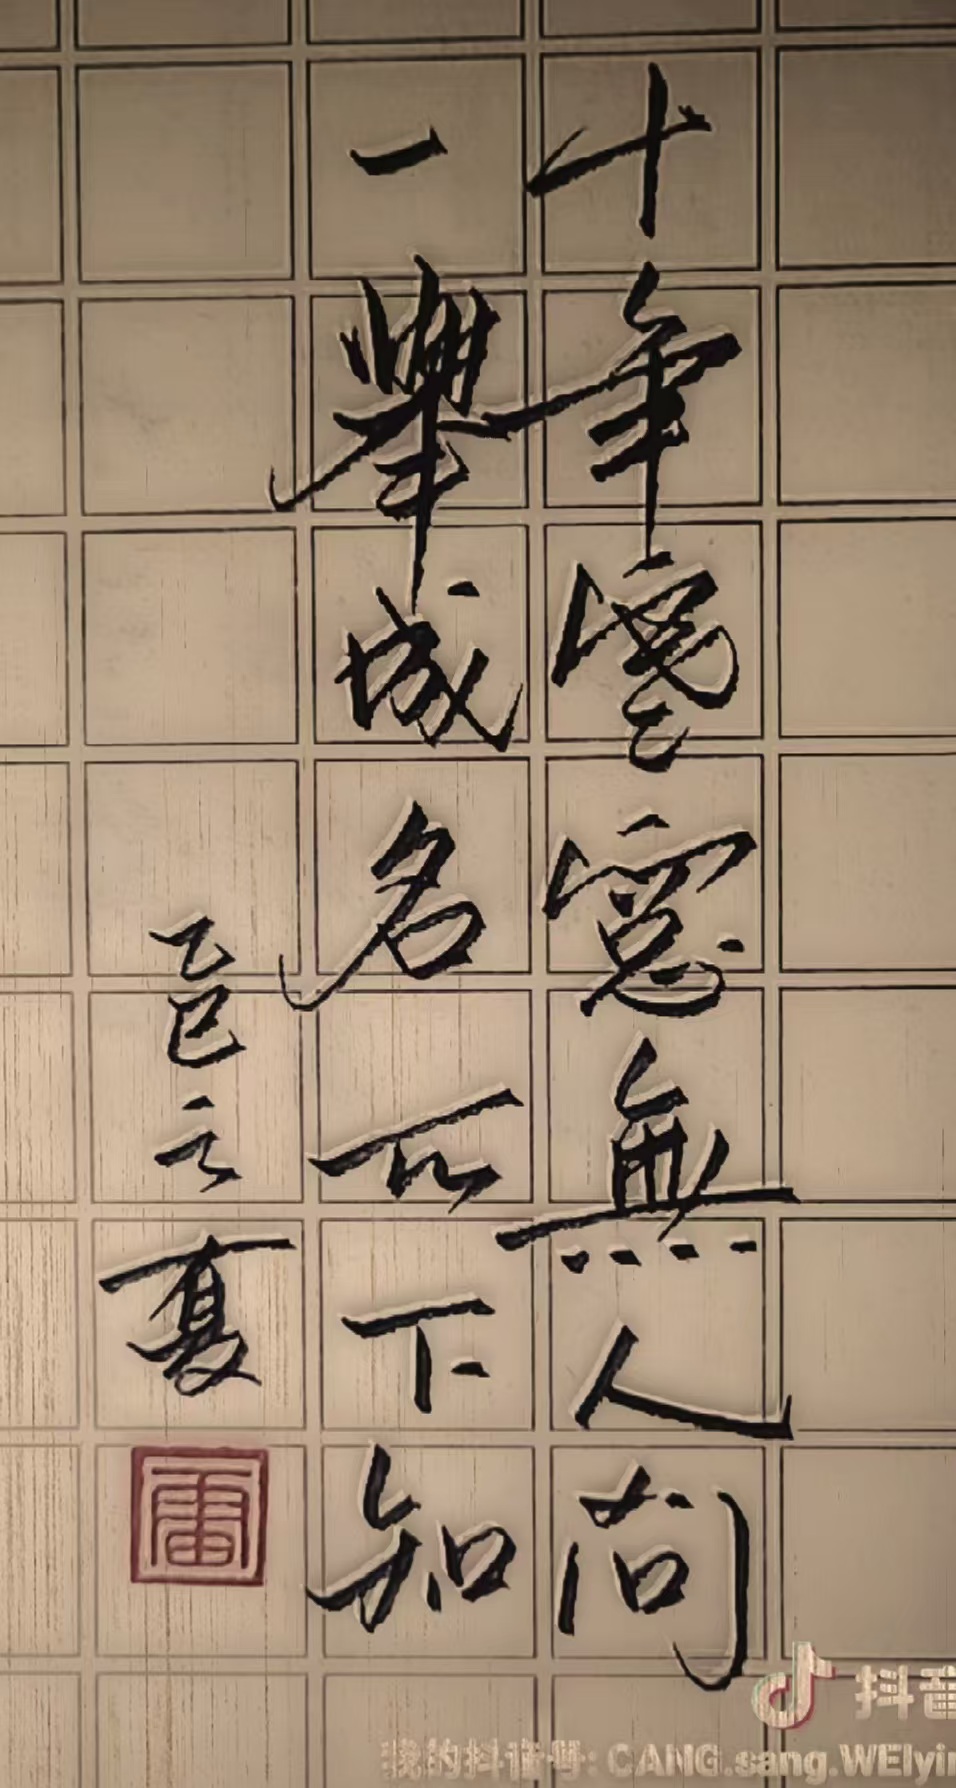 十年寒窻無人问
一舉成名天下知
乙巳之夏
雷
抖音
我的抖音号: CANG.sang.WEIyin